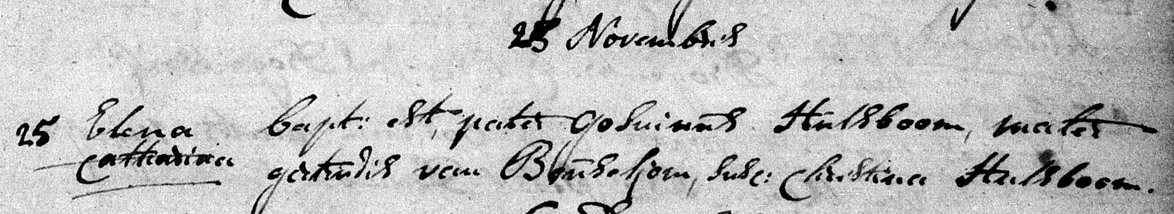 25 Novembris
25 Elena bapt: est, pater Gosuinus Hulsboom, mater
Catharina gertrudis van Bonshom, susc: Christina Hulsboom.